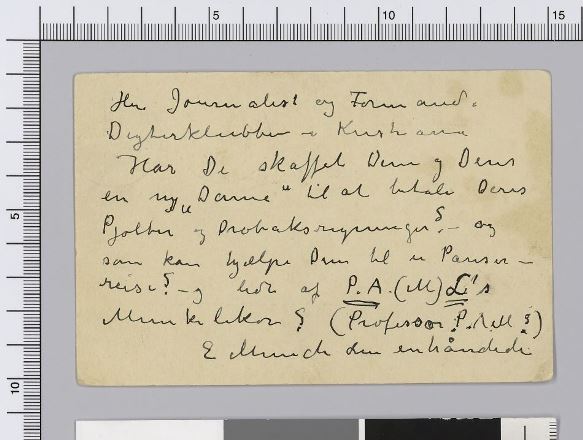 5 10 15
Her Journalist og Formand.
Digterklubben i Kristiania
Har De skaffet Dem og Deres
en ny „Dame" til at betale Deres
Pjolter og Drobaksregninger? – og
som kan hjelpe Dem til en Pariser –
reise? – og lidt af P.A. (M) L's
Munkelikør? (Professor P.A.M?)
E Munch den enhåndede
5
10